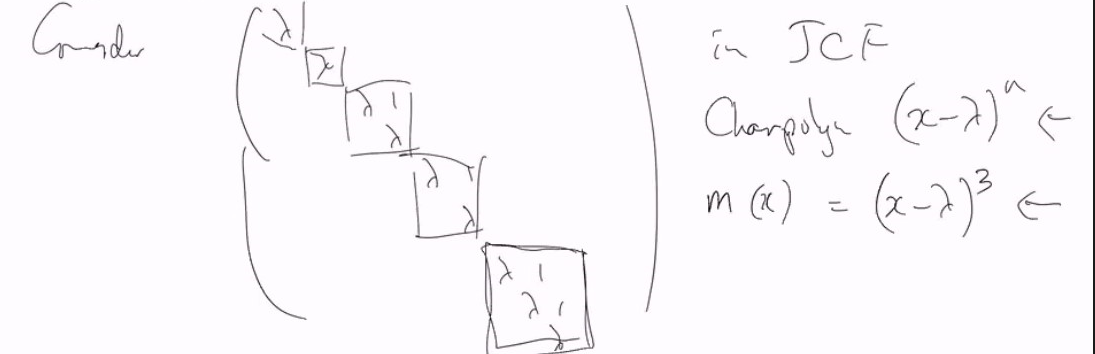 Consider
λ
λ
λ 1
λ
λ 1
λ
λ 1
λ 1
λ
in JCF
Charpoly (x-λ)ⁿ ←
m(x) = (x-λ)³ ←